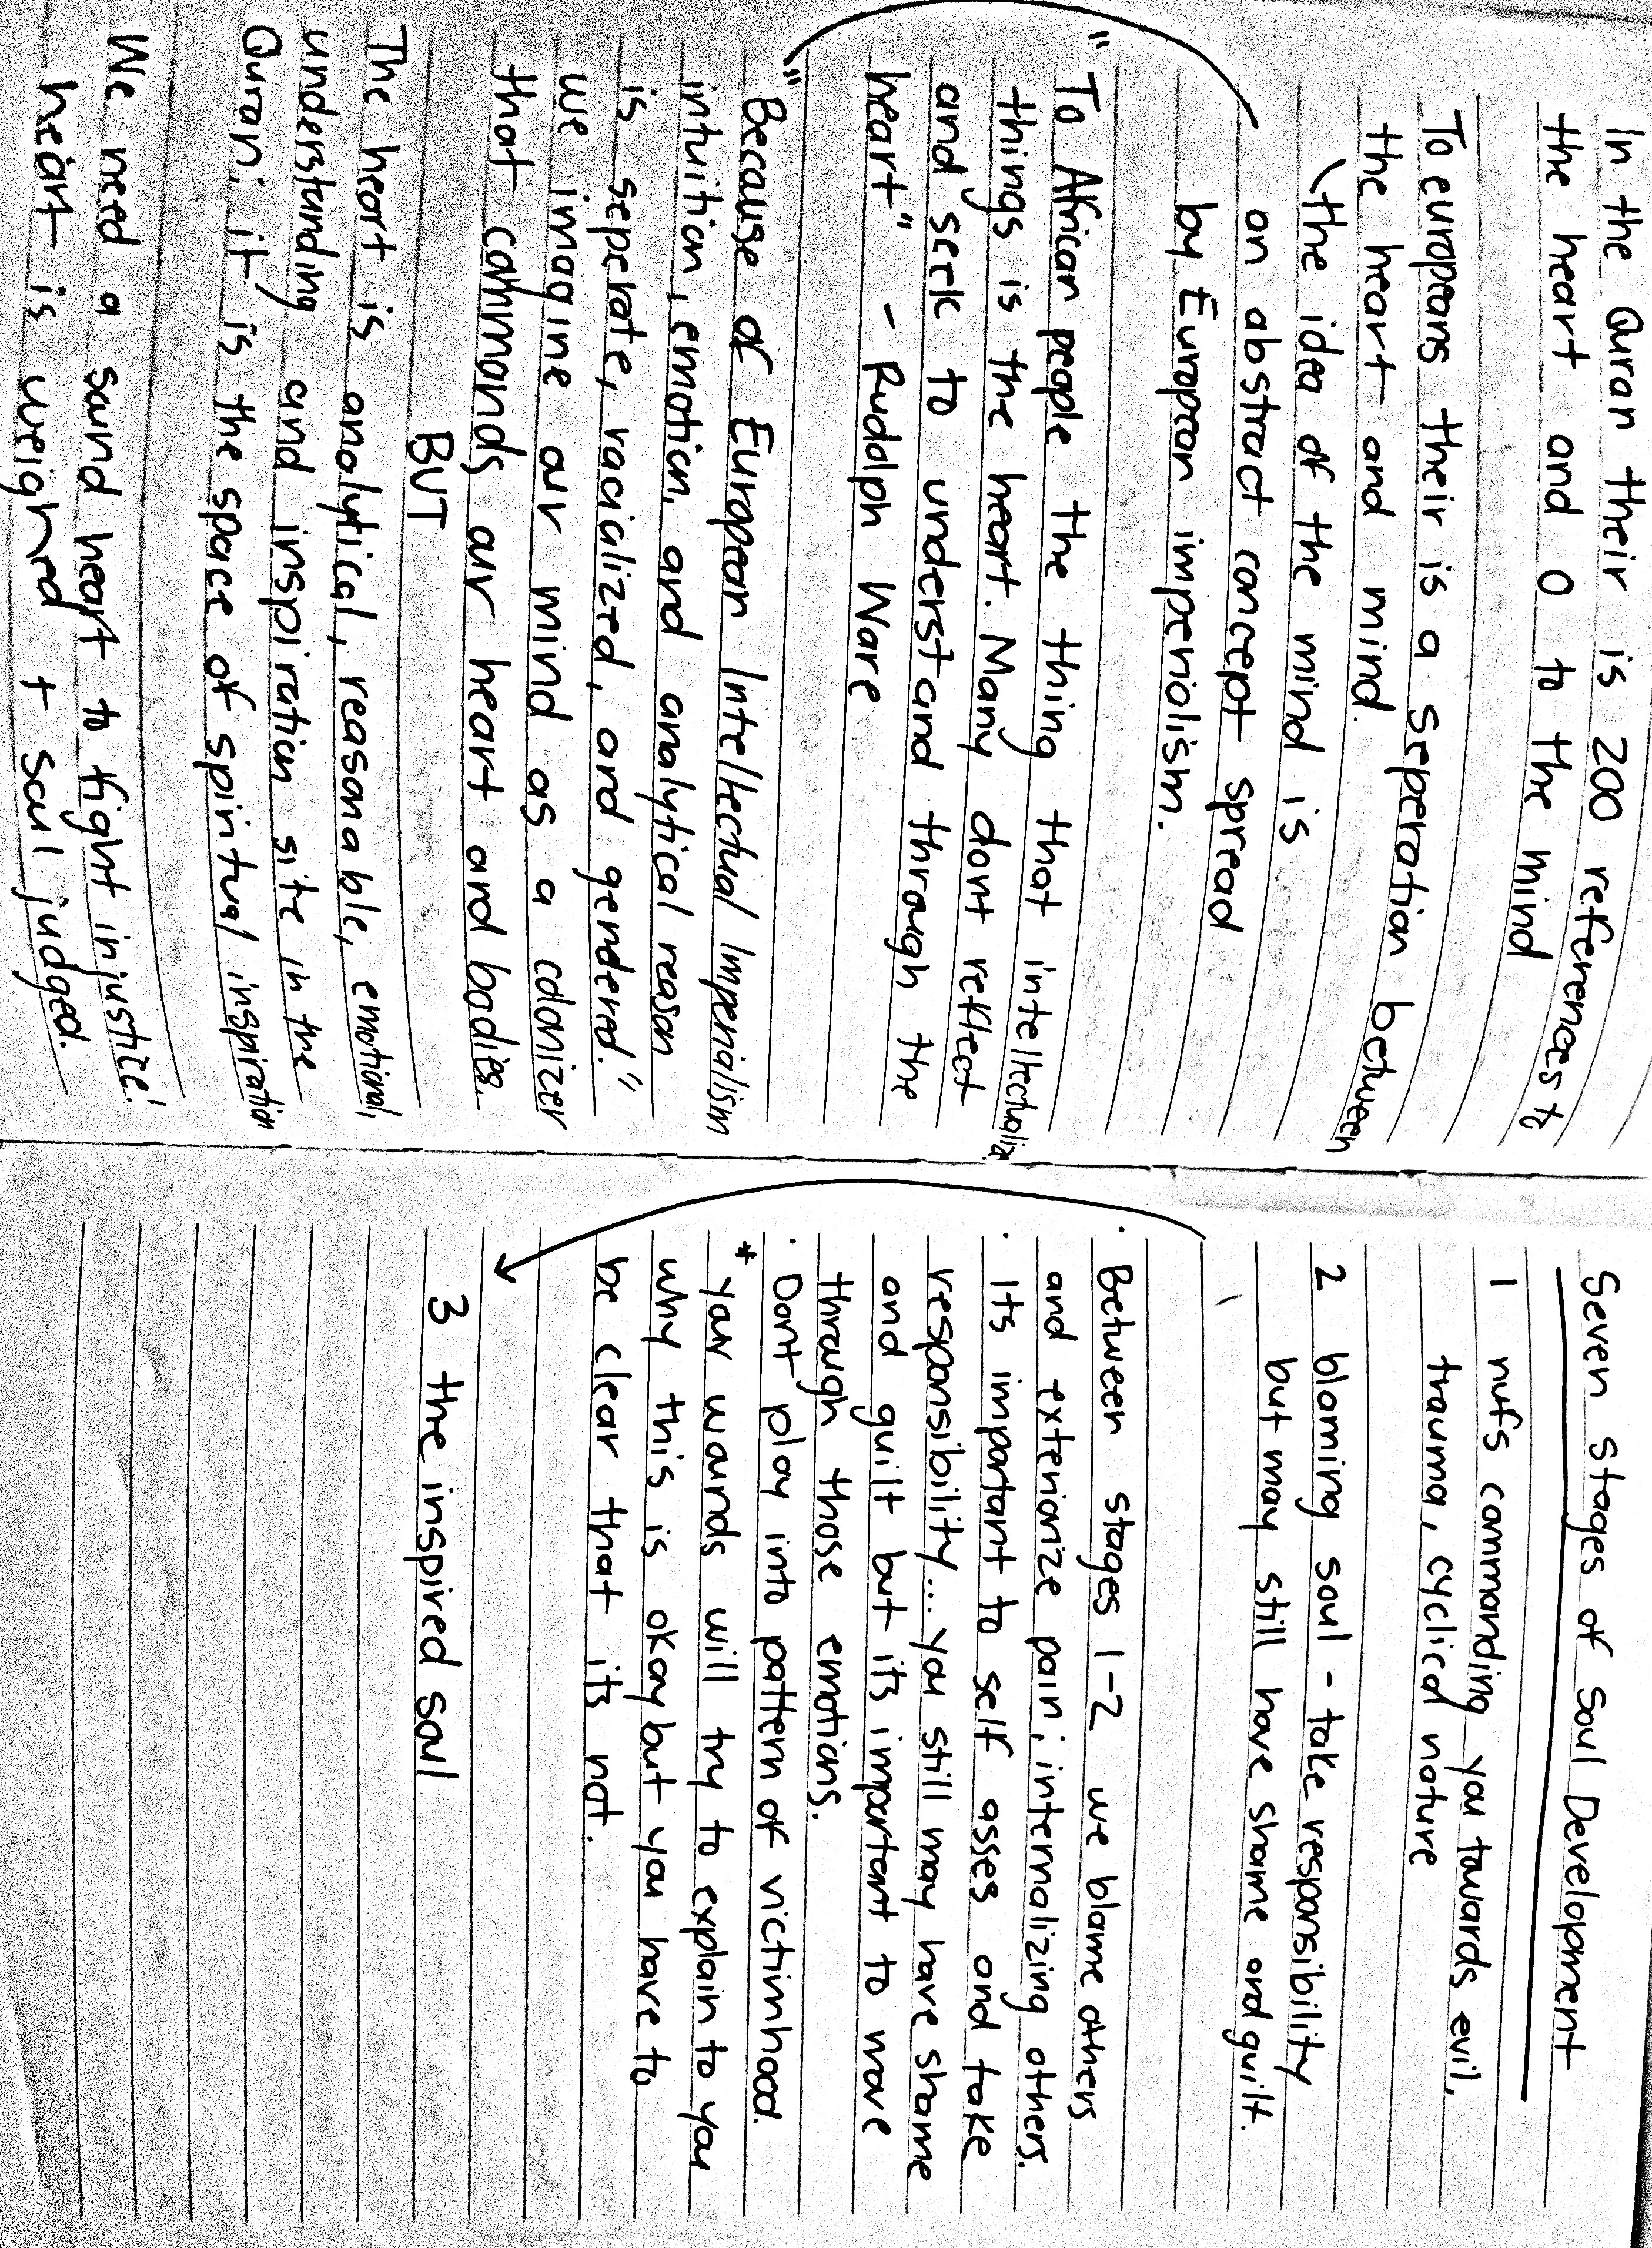 In the Quran their is 200 references to
the heart and 0 to the mind
To europeans their is a seperation between
the heart and mind.
the idea of the mind is
on abstract concept spread
by European imperiolism.
"To African people the thing that intellectualize
things is the heart. Many dont reflect
and seek to understand through the
heart" - Rudolph Ware
"Because of European Intellectual Imperialism
intuition, emotion, and analytical reason
is seperate, racialized, and gendered."
we imagine our mind as a colonizer
that commands our heart and bodies.
BUT
The heart is analytical, reasonable, emotional,
understanding and inspiration site in the
Quran; it is the space of spiritual inspiration
We need a sound heart to fight injustice!
heart is weighed + soul judged.
Seven stages of Soul Development
1 nufs commanding you towards evil,
trauma, cyclical nature
2 bloming soul - take responsibility
but may still have shame and guilt.
· Between stages 1-2 we blame others
and exteriorize pain; internalizing others.
· Its important to self asses and take
responsibility... you still may have shame
and guilt but its important to move
through those emotions.
· Dont play into pattern of victimhood.
* your wounds will try to explain to you
why this is okay but you have to
be clear that its not.
3 the inspired soul